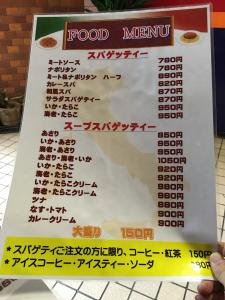 FOOD MENU
スパゲッティー
ミートソース 780円
ナポリタン 780円
ミート&ナポリタン ハーフ 890円
カレースパ 820円
和風スパ 820円
サラダスパゲティー 870円
いか・たらこ 950円
海老・たらこ 950円
スープスパゲッティー
あさり 850円
いか・あさり 950円
海老・あさり 950円
あさり・海老・いか 1050円
いか・たらこ 920円
海老・たらこ 920円
いか・たらこクリーム 950円
海老・たらこクリーム 950円
ツナ 890円
なす・トマト 900円
カレークリーム 900円
大盛り 150円
★スパゲティご注文の方に限り、コーヒー・紅茶 150円
★アイスコーヒー・アイスティー・ソーダ